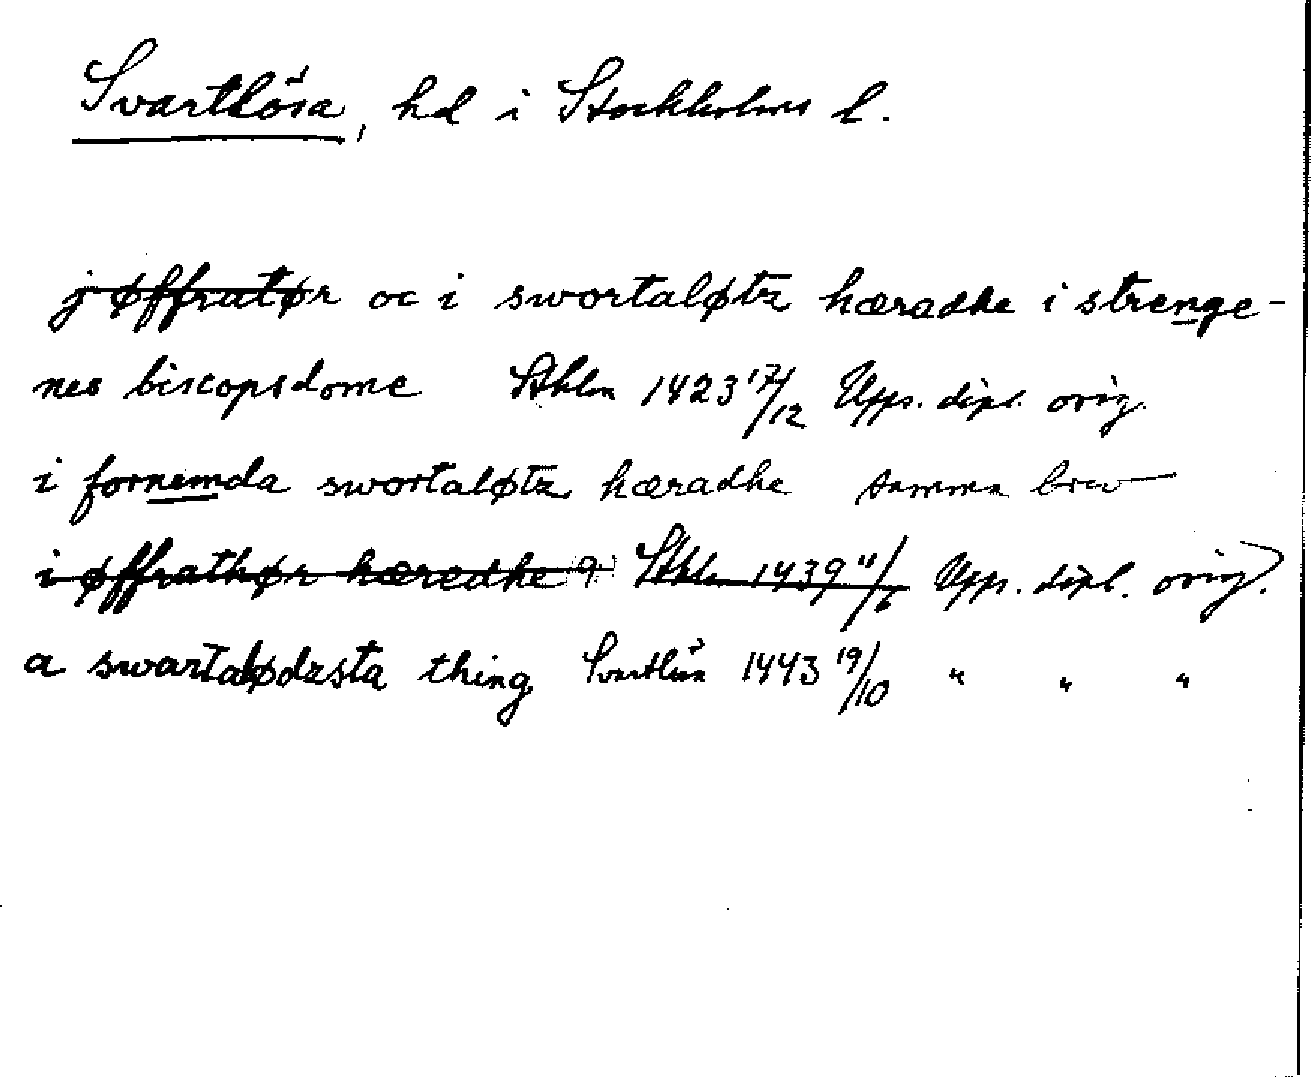 Svartlösa, hd i Stockholms l.
j øffratør oc i swortaløtz hæradhe i strenge-
nes biscopsdome Sthlm 1423 17/12 Upps. dipl. orig.
i fornemda swortaløtz hæradhe samma brev
i øffrathør hæredhe Sthlm 1439 11/6 Upps. dipl. orig.
a swartalødzsta thing Svartlösa 1443 19/10 " " "